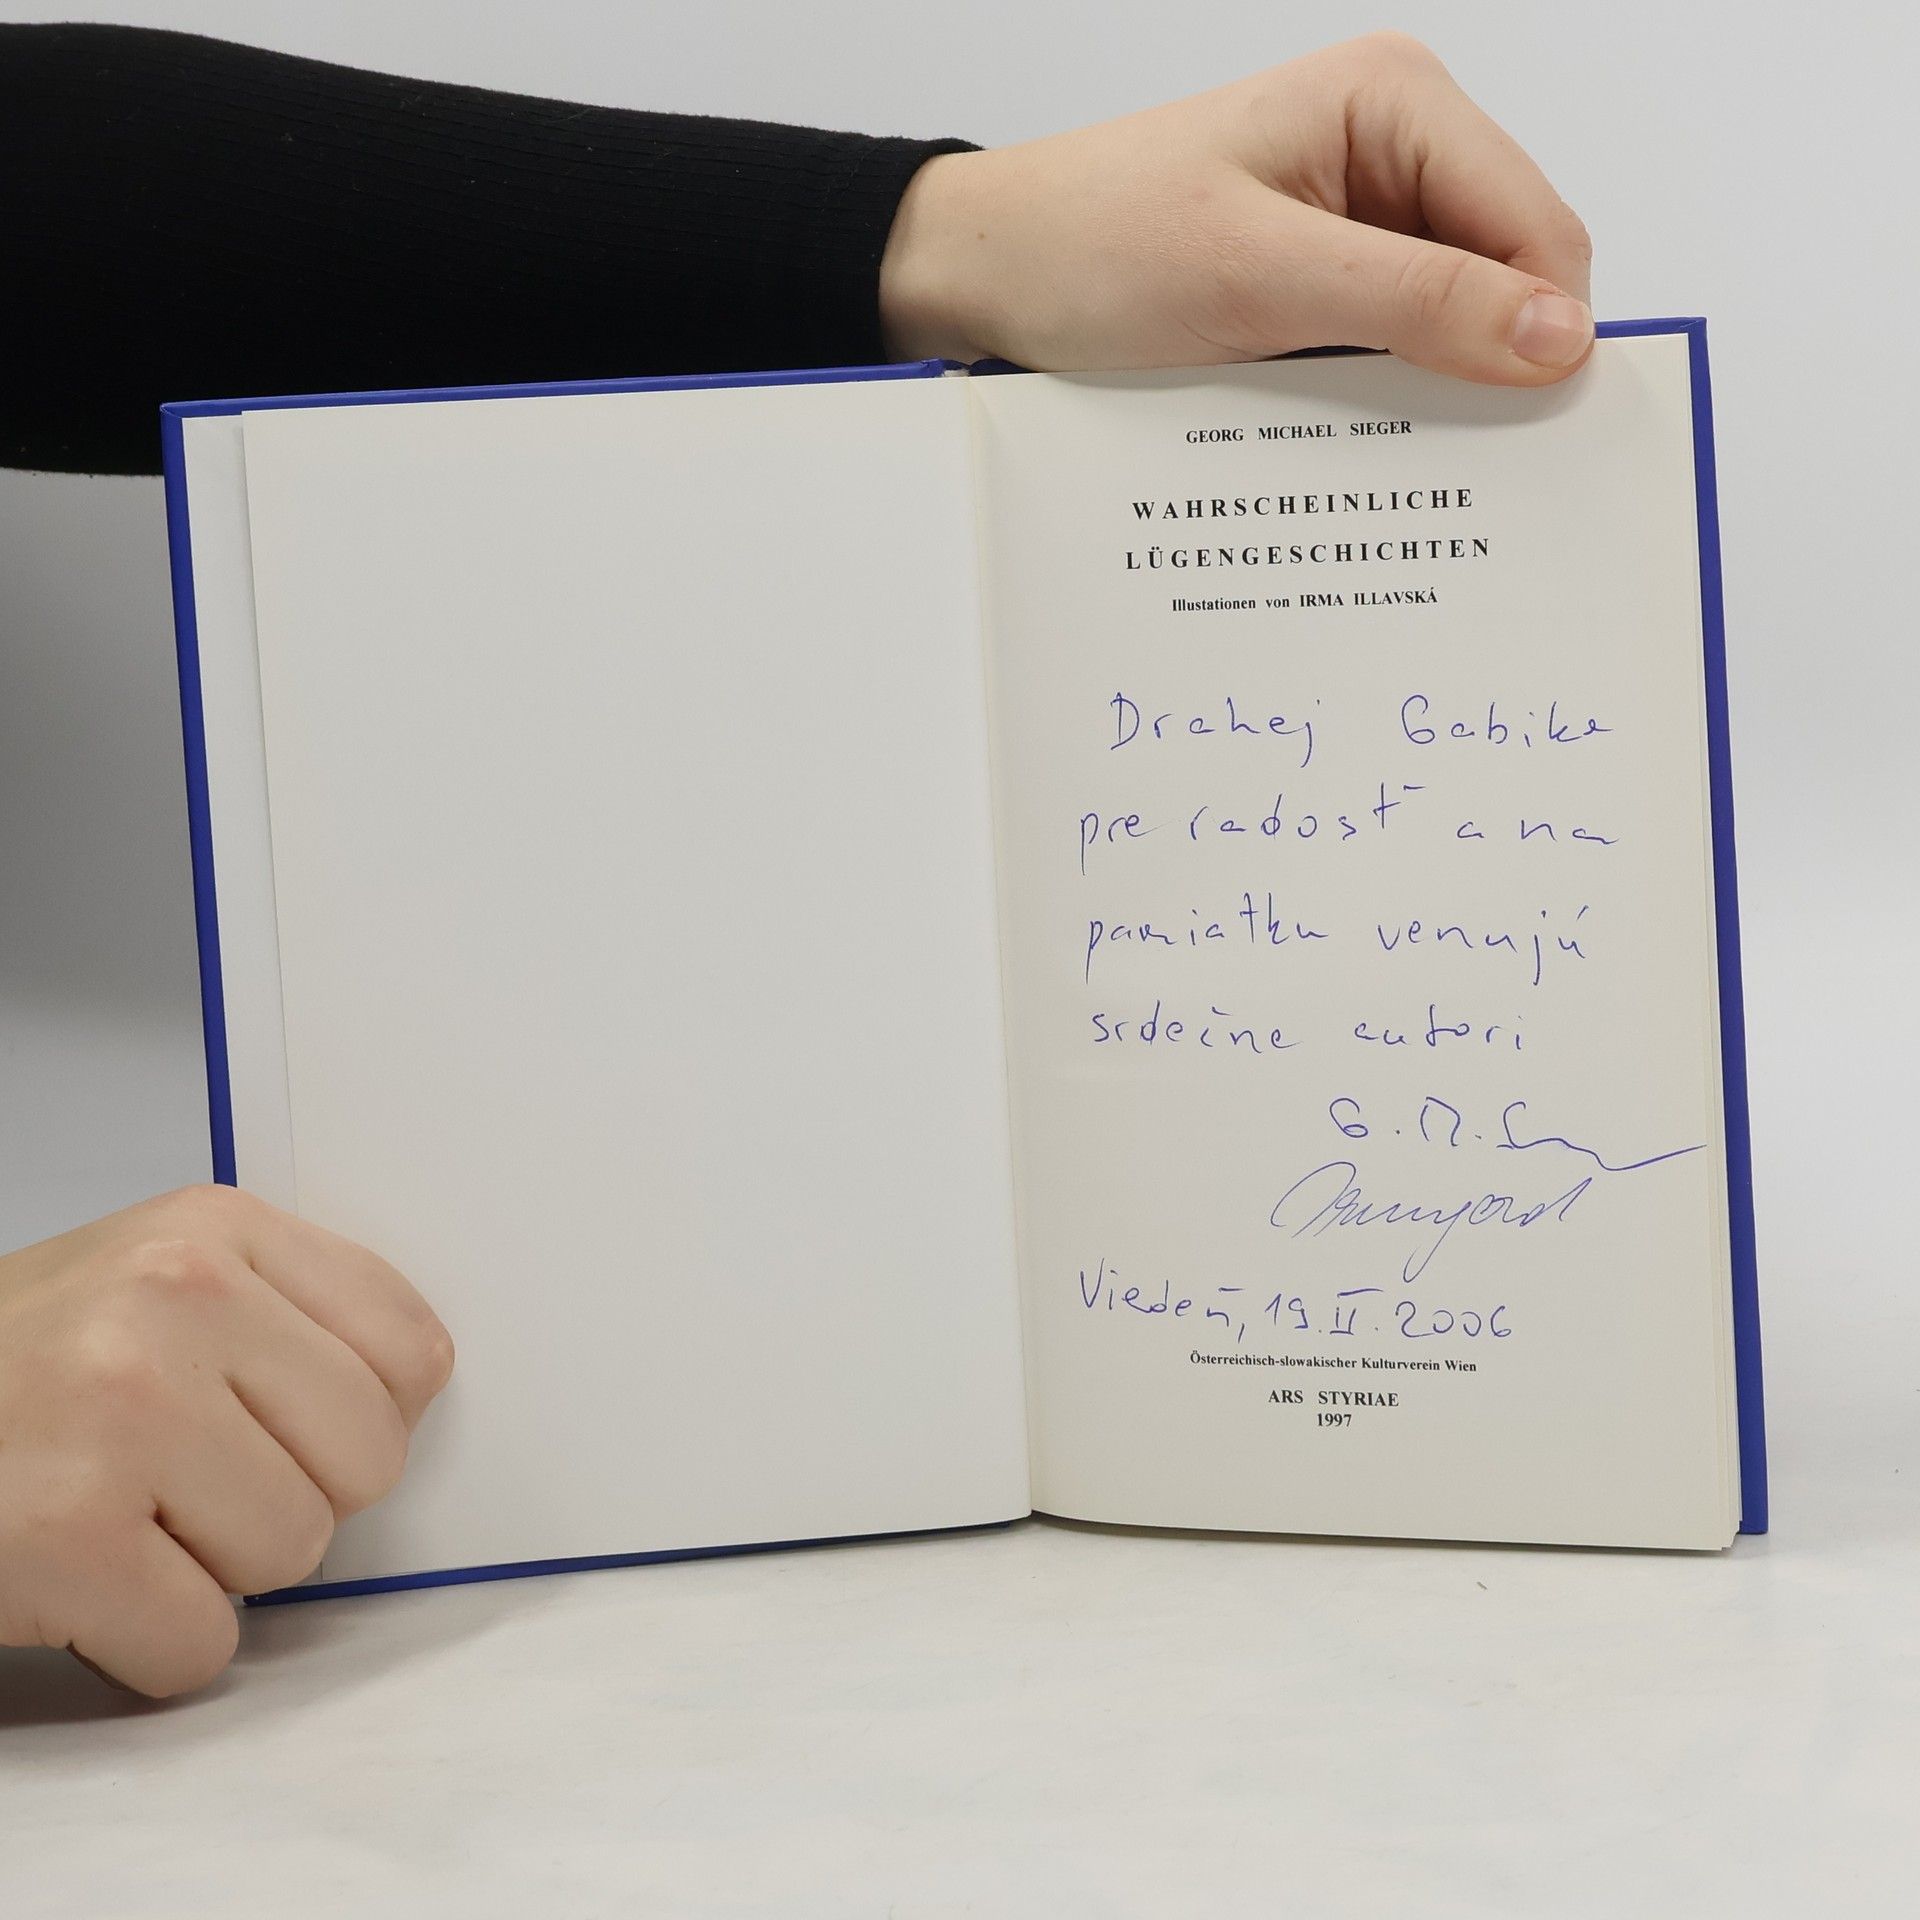 GEORG MICHAEL SIEGER
WAHRSCHEINLICHE
LÜGENGESCHICHTEN
Illustationen von IRMA ILLAVSKÁ
Drahej Gabike
pre radosť a na
pamiatku venujú
srdečne autori
G. M.
Viedeň, 19. II. 2006
Österreichisch-slowakischer Kulturverein Wien
ARS STYRIAE
1997